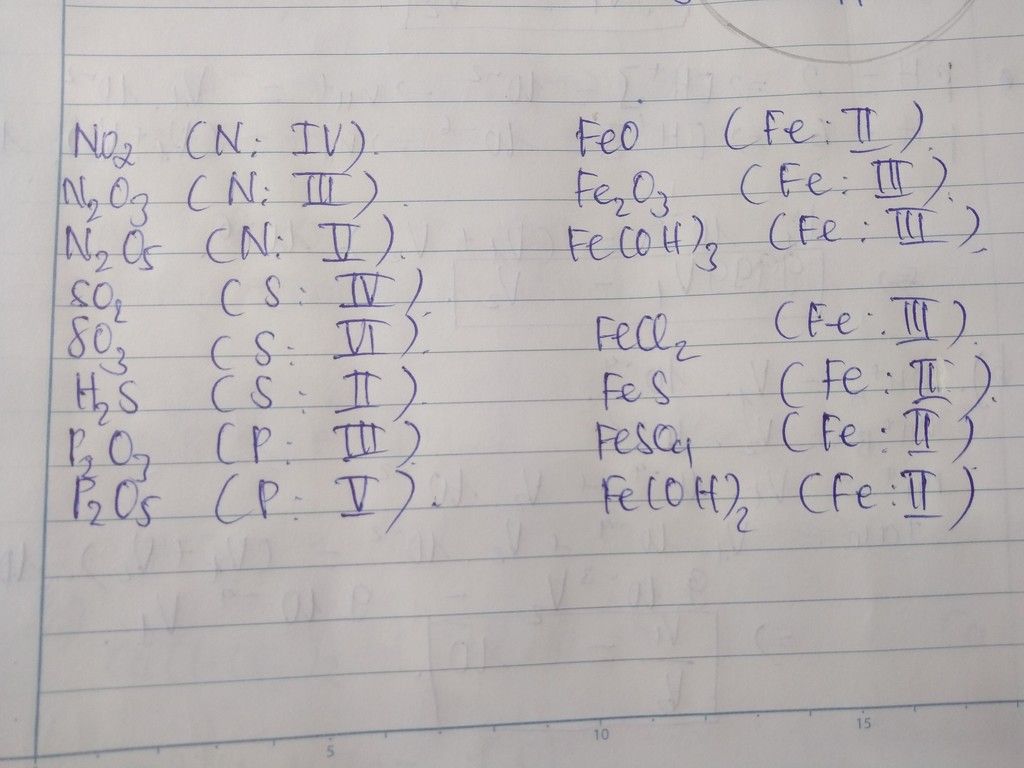 NO2 (N: IV).
N2O3 (N: III).
N2O5 (N: V).
SO2 (S: IV).
SO3 (S: VI).
H2S (S: II).
P2O3 (P: III).
P2O5 (P: V).
FeO (Fe: II).
Fe2O3 (Fe: III).
Fe(OH)3 (Fe: III).
FeCl2 (Fe: III).
FeS (Fe: II).
FeSO4 (Fe: II)
Fe(OH)2 (Fe: II)
5 10 15